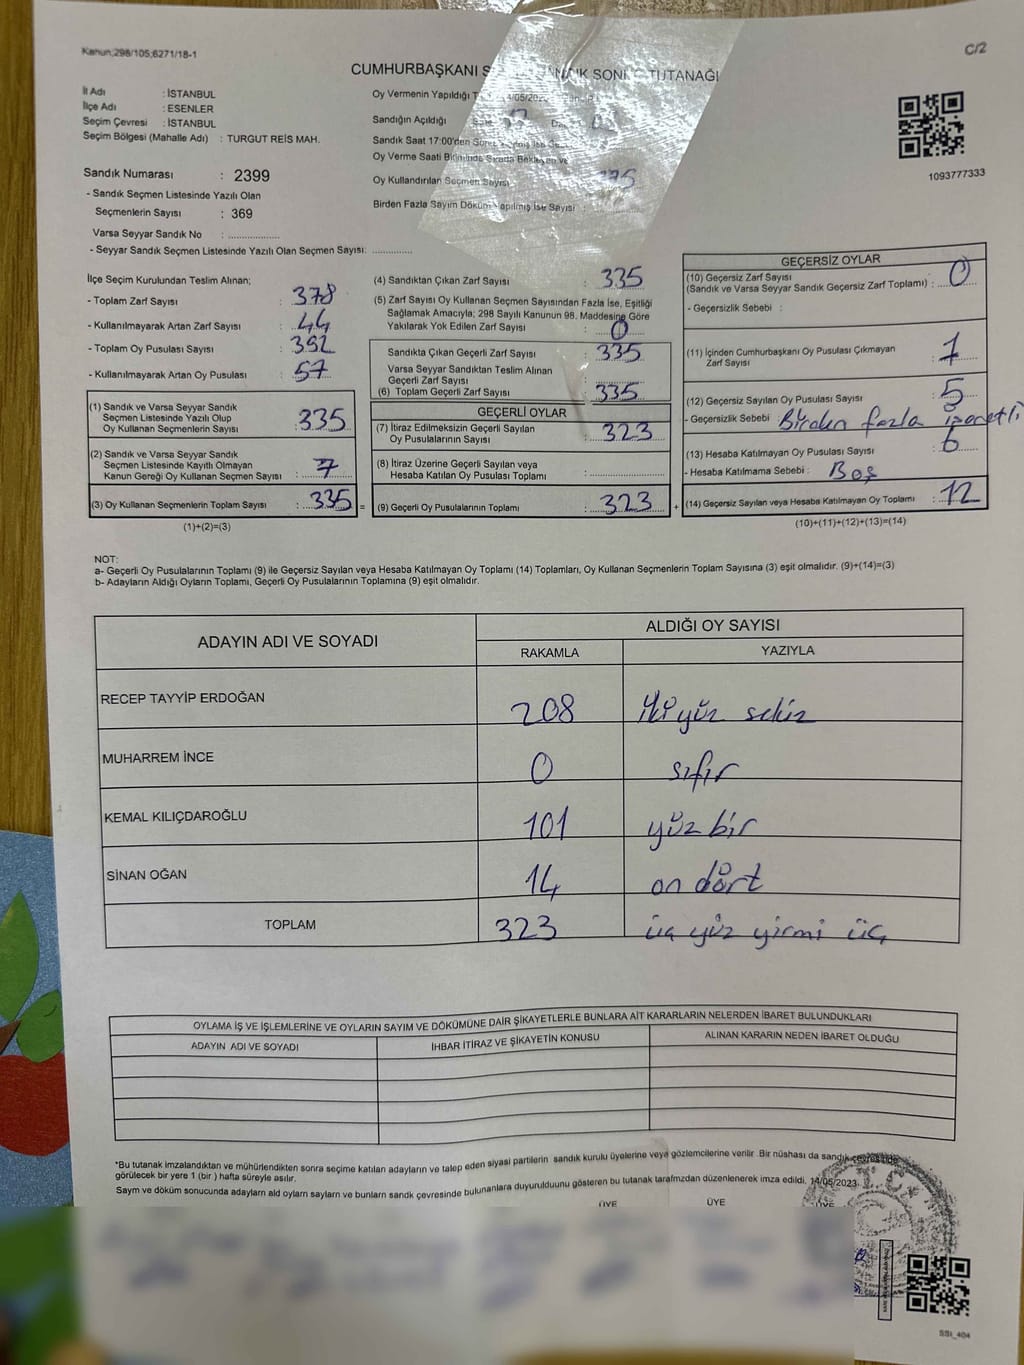 Kanun;298/105;6271/18-1
C/2
CUMHURBAŞKANI SANDIK SONUÇ TUTANAĞI
İl Adı : İSTANBUL
İlçe Adı : ESENLER
Seçim Çevresi : İSTANBUL
Seçim Bölgesi (Mahalle Adı) : TURGUT REİS MAH.
Sandık Numarası : 2399
- Sandık Seçmen Listesinde Yazılı Olan
Seçmenlerin Sayısı : 369
Varsa Seyyar Sandık No : ................
- Seyyar Sandık Seçmen Listesinde Yazılı Olan Seçmen Sayısı: ............
Oy Vermenin Yapıldığı
Sandığın Açıldığı
Sandık Saat 17:00'den Sonra
Oy Verme Saati Bitiminde Sırada Bekleyen ve
Oy Kullandırılan Seçmen Sayısı
Birden Fazla Sayım Döküm Yapılmış İse Sayısı :
1093777333
İlçe Seçim Kurulundan Teslim Alınan;
- Toplam Zarf Sayısı : 378
- Kullanılmayarak Artan Zarf Sayısı : 44
- Toplam Oy Pusulası Sayısı : 392
- Kullanılmayarak Artan Oy Pusulası : 57
(1) Sandık ve Varsa Seyyar Sandık
Seçmen Listesinde Yazılı Olup
Oy Kullanan Seçmenlerin Sayısı : 335
(2) Sandık ve Varsa Seyyar Sandık
Seçmen Listesinde Kayıtlı Olmayan
Kanun Gereği Oy Kullanan Seçmen Sayısı :
(3) Oy Kullanan Seçmenlerin Toplam Sayısı : 335 =
(1)+(2)=(3)
(4) Sandıktan Çıkan Zarf Sayısı : 335
(5) Zarf Sayısı Oy Kullanan Seçmen Sayısından Fazla İse, Eşitliği
Sağlamak Amacıyla; 298 Sayılı Kanunun 98. Maddesine Göre
Yakılarak Yok Edilen Zarf Sayısı : 0
Sandıkta Çıkan Geçerli Zarf Sayısı : 335
Varsa Seyyar Sandıktan Teslim Alınan
Geçerli Zarf Sayısı :
(6) Toplam Geçerli Zarf Sayısı : 335
GEÇERLİ OYLAR
(7) İtiraz Edilmeksizin Geçerli Sayılan
Oy Pusulalarının Sayısı : 323
(8) İtiraz Üzerine Geçerli Sayılan veya
Hesaba Katılan Oy Pusulası Toplamı :
(9) Geçerli Oy Pusulalarının Toplamı : 323 +
GEÇERSİZ OYLAR
(10) Geçersiz Zarf Sayısı
(Sandık ve Varsa Seyyar Sandık Geçersiz Zarf Toplamı) : 0
- Geçersizlik Sebebi :
(11) İçinden Cumhurbaşkanı Oy Pusulası Çıkmayan
Zarf Sayısı : 1
(12) Geçersiz Sayılan Oy Pusulası Sayısı : 5
- Geçersizlik Sebebi : Birden fazla işaretli
(13) Hesaba Katılmayan Oy Pusulası Sayısı : 6
- Hesaba Katılmama Sebebi : Boş
(14) Geçersiz Sayılan veya Hesaba Katılmayan Oy Toplamı : 12
(10)+(11)+(12)+(13)=(14)
NOT:
a- Geçerli Oy Pusulalarının Toplamı (9) ile Geçersiz Sayılan veya Hesaba Katılmayan Oy Toplamı (14) Toplamları, Oy Kullanan Seçmenlerin Toplam Sayısına (3) eşit olmalıdır. (9)+(14)=(3)
b- Adayların Aldığı Oyların Toplamı, Geçerli Oy Pusulalarının Toplamına (9) eşit olmalıdır.
ADAYIN ADI VE SOYADI
ALDIĞI OY SAYISI
RAKAMLA YAZIYLA
RECEP TAYYİP ERDOĞAN 208 iki yüz sekiz
MUHARREM İNCE 0 sıfır
KEMAL KILIÇDAROĞLU 101 yüz bir
SİNAN OĞAN 14 on dört
TOPLAM 323 üç yüz yirmi üç
OYLAMA İŞ VE İŞLEMLERİNE VE OYLARIN SAYIM VE DÖKÜMÜNE DAİR ŞİKAYETLERLE BUNLARA AİT KARARLARIN NELERDEN İBARET BULUNDUKLARI
ADAYIN ADI VE SOYADI İHBAR İTİRAZ VE ŞİKAYETİN KONUSU ALINAN KARARIN NEDEN İBARET OLDUĞU
*Bu tutanak imzalandıktan ve mühürlendikten sonra seçime katılan adayların ve talep eden siyasi partilerin sandık kurulu üyelerine veya gözlemcilerine verilir. Bir nüshası da sandık çevresinde
görülecek bir yere 1 (bir ) hafta süreyle asılır.
Sayım ve döküm sonucunda adayların aldı oyların sayıları ve bunların sandık çevresinde bulunanlara duyurulduunu gösteren bu tutanak tarafmzdan düzenlenerek imza edildi. 14/05/2023
ÜYE ÜYE ÜYE
T.C.
SSt_404